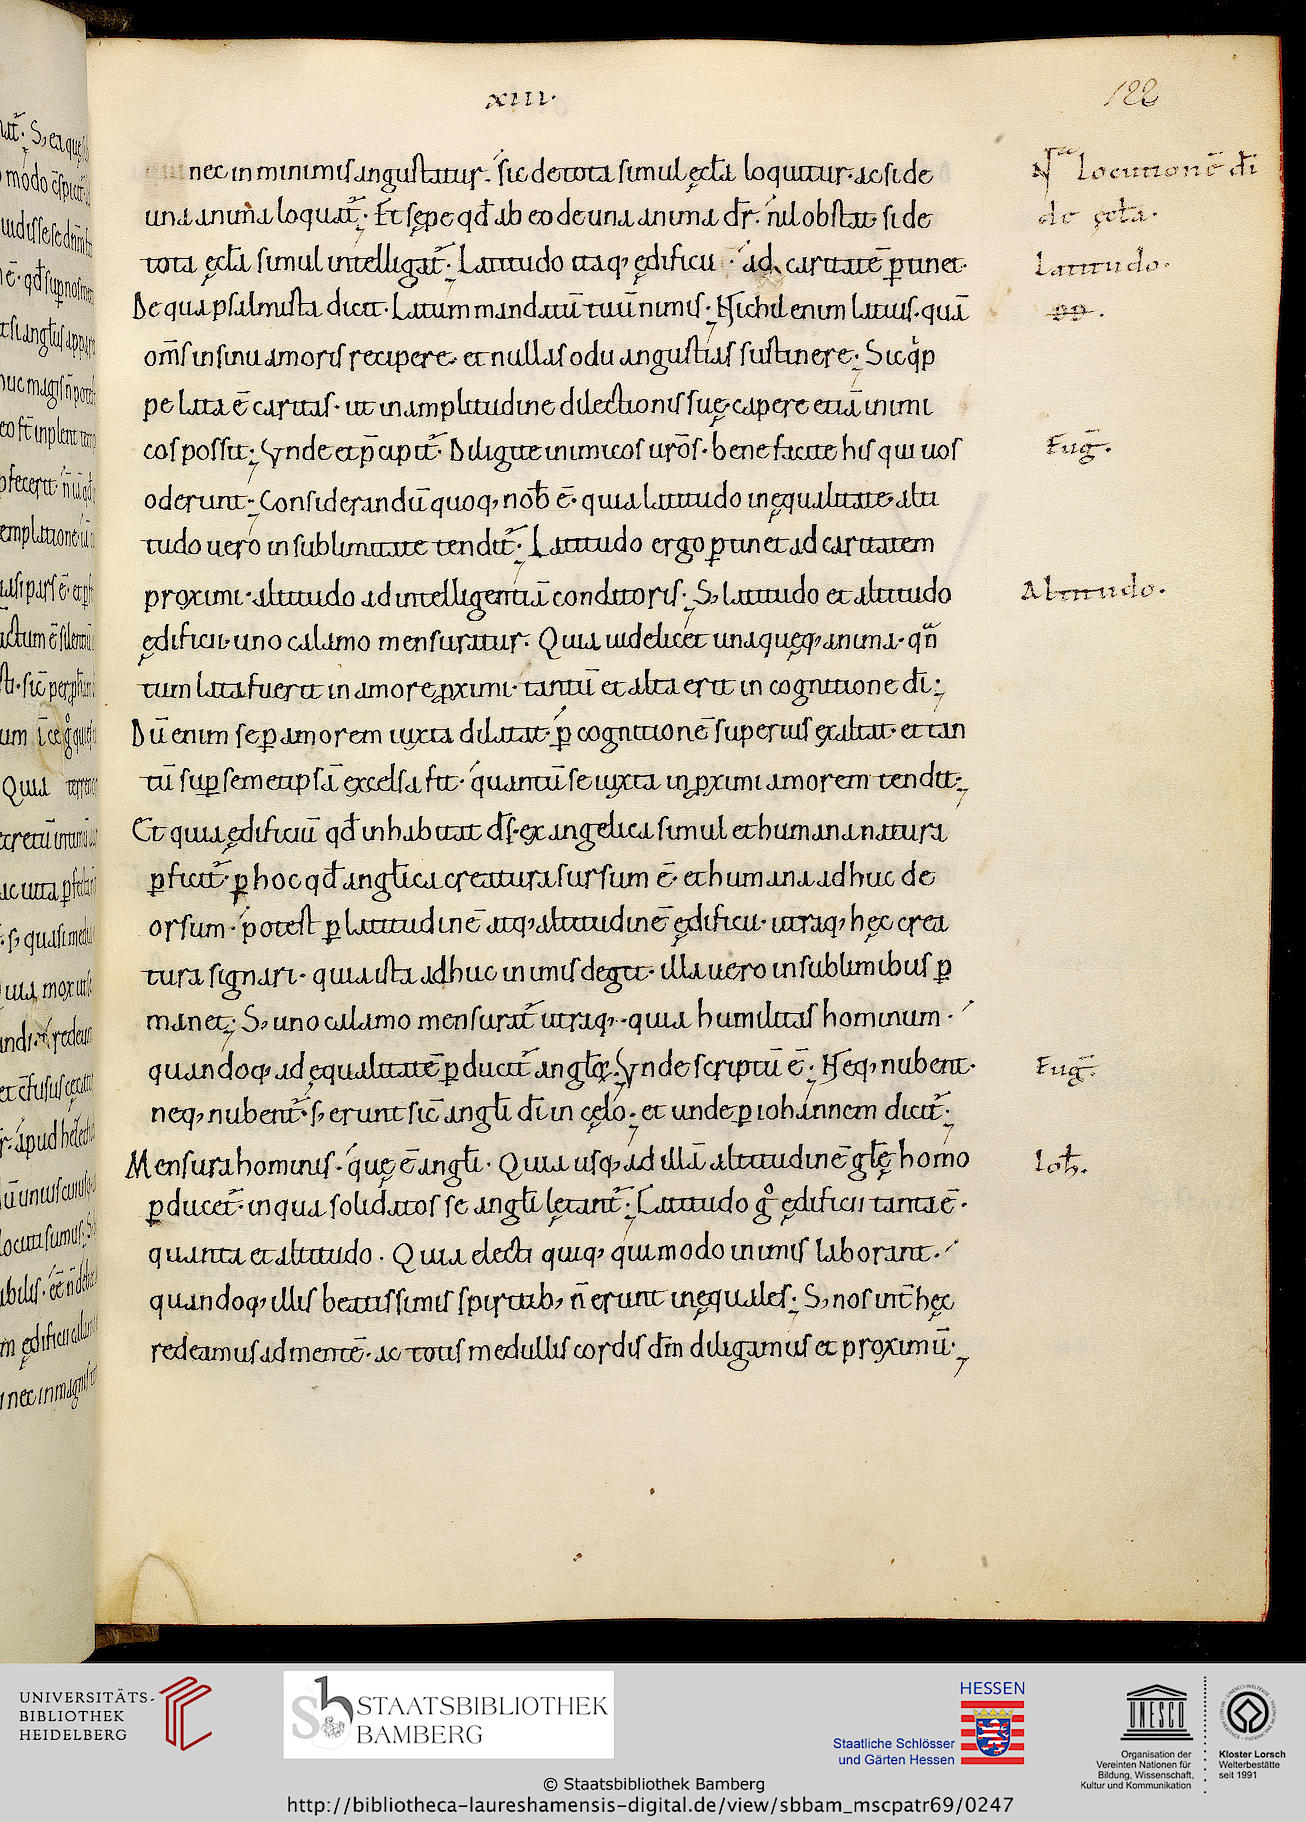 xıııı·
122
nec in minimis angustatur· sic de tota simul ęcłа loquitur· ac si de
N̄ locutionē dı̄
una anima loquat̃· Et sępe qđ ab eo de una anima dr̄· nil obstat si de
de ęcła·
tota ęcła simul intelligat̃· Latitudo itaq; ędificii · ad caritatē ptinet·
Latitudo·
De qua psalmista dicit· Latum mandatū tuū nimis· Hichil enim latius· quā
om̄s in sinu amoris recipere· et nullas odii angustias sustinere· Sic qp
pe lata ē caritas· ut in amplitudine dilectionis suę capere etiā inimi
cos possit· Vnde et p̄cipit̃· Diligite inimicos uros̄· bene facite his qui uos
Eug̃·
oderunt· Considerandū quoq; nob̄ ē· quia latitudo in ęqualitate· alti
tudo uero in sublimitate tendit̃· Latitudo ergo ptinet ad caritatem
proximi· altitudo ad intelligentiā conditoris· S; latitudo et altitudo
Altitudo·
ędificii· uno calamo mensuratur· Quia uidelicet unaquęq; anima· qn̄
tum lata fuerit in amore pximi· tantū et alta erit in cognitione dı̄·
Dū enim se p amorem iuxta dilatat· p cognitionē superius exaltat· et tan
tū sup semetipsā excelsa fit· quantū se iuxta in pximi amorem tendit·
Et quia ędificiū qđ inhabitat ds̄· ex angelica simul et humana natura
pficit̃· p hoc qđ anglica creatura sursum ē· et humana adhuc de
orsum· potest p latitudinē atq; altitudinē ędificii· utraq; hęc crea
tura signari· quia ista adhuc in imis degit· illa uero in sublimibus p
manet· S; uno calamo mensurat̃ utraq;· quia humilitas hominum·
quandoq; ad ęqualitatē pducit̃ anglo℞· Vnde scriptū ē· Heq; nubent·
Eug̃·
neq; nubent̃· s; erunt sic̄ angli dı̄ in cęlo· et unde p iohannem dicit̃·
Mensura hominis· quę ē angli· Quia usq; ad illā altitudinē głę homo
Ioh̄·
pducet̃· in qua solidatos se angli lętant̃· Latitudo g° ędificii tanta ē·
quanta et altitudo· Quia electi quiq; qui modo in imis laborant·
quandoq; illis beatissimis spiritib; n̄ erunt inęquales· S; nos int̄ hęc
redeamus ad mentē· ac totis medullis cordis dm̄ diligamus et proximū·
UNIVERSITÄTS-
BIBLIOTHEK
HEIDELBERG
STAATSBIBLIOTHEK
BAMBERG
HESSEN
Staatliche Schlösser
und Gärten Hessen
UNESCO
Organisation der
Vereinten Nationen für
Bildung, Wissenschaft,
Kultur und Kommunikation
Kloster Lorsch
Welterbestätte
seit 1991
© Staatsbibliothek Bamberg
http://bibliotheca-laureshamensis-digital.de/view/sbbam_mscpatr69/0247